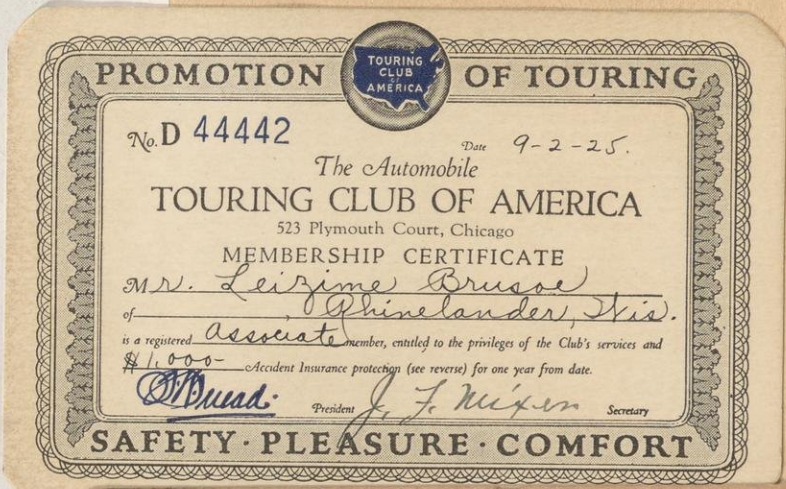 PROMOTION OF TOURING
TOURING
CLUB
OF
AMERICA
No. D 44442
Date 9-2-25.
The Automobile
TOURING CLUB OF AMERICA
523 Plymouth Court, Chicago
MEMBERSHIP CERTIFICATE
Mr. Leizime Brusoe
of Rhinelander, Wis.
is a registered Associate member, entitled to the privileges of the Club's services and
$1,000- Accident Insurance protection (see reverse) for one year from date.
President J. F. Mixen Secretary
SAFETY · PLEASURE · COMFORT